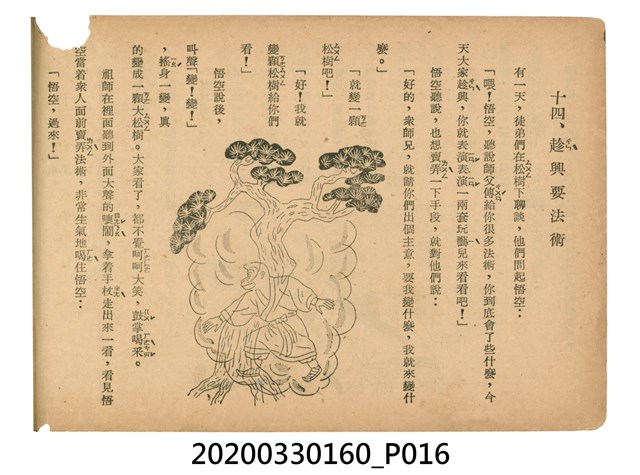 十四、趁興耍法術
有一天，徒弟們在松樹下聊談，他們問起悟空：
「喂！悟空，聽說師父傳給你很多法術，你到底會了些什麼，今
天大家趁興，你就表演表演一兩套玩藝兒來看看吧！」
悟空聽說，也想賣弄一下手段，就對他們說：
「好的，衆師兄，就請你們出個主意，要我變什麼，我就來變什
麼。」
「就變一顆
松樹吧！」
「好！我就
變顆松樹給你們
看！」
悟空說後，
叫聲「變！變！」
，搖身一變，眞
的變成一顆大松樹。大家看了，都不覺呵呵大笑，鼓掌喝采。
祖師在裡面聽到外面大聲的嚷鬧，拿着手杖走出來一看，看見悟
空當着衆人面前賣弄法術，非常生氣地喝住悟空：
「悟空，過來！」
20200330160_P016